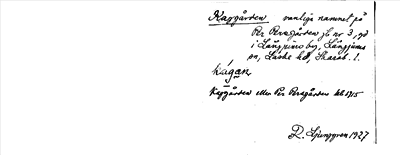 Kapgården vanliga namnet på
Per Persgården gl nr 3, på
i Långjums by, Längjums
sn, Laske hd, Skarab. l.
kágan
Kapgården eller Per Persgården kb 1715
R. Ljunggren 1927